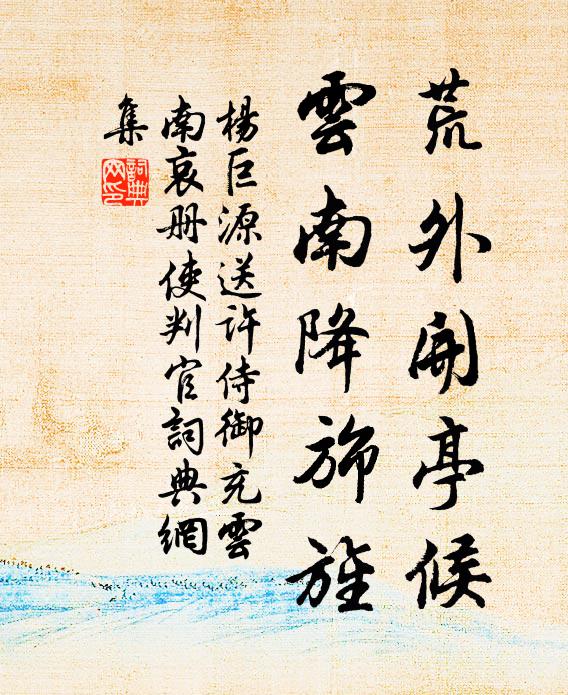 荒外開亭候
雲南降旆旌
楊巨源送許侍御充雲
南哀册使判官詞典網
集
詞典網印